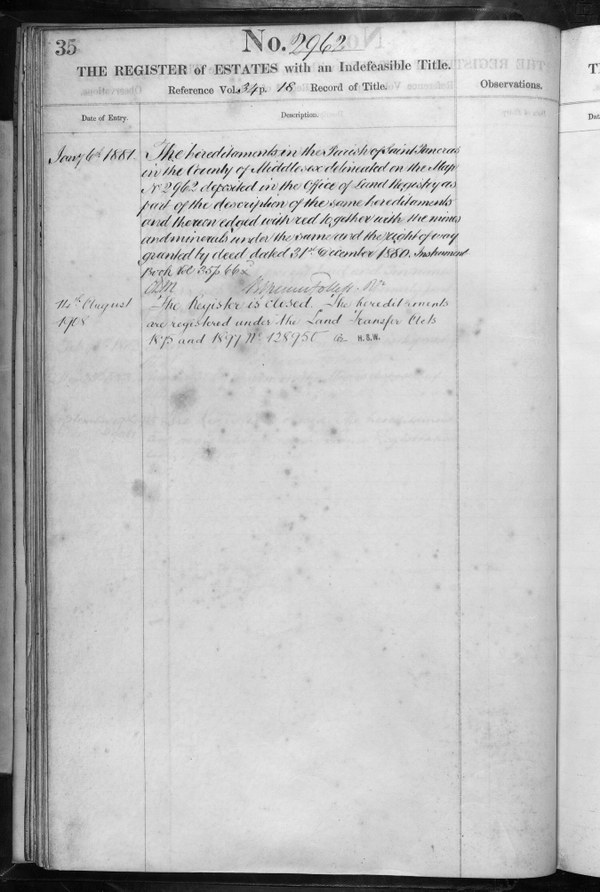 35
No. 2962
THE REGISTER of ESTATES with an Indefeasible Title.
Reference Vol. 34 p. 18 Record of Title.
Observations.
Date of Entry.
Description.
Jany 6th 1881.
The hereditaments in the Parish of Saint Pancras
in the County of Middlesex delineated on the Map
No 2962 deposited in the Office of Land Registry as
part of the description of the same hereditaments
and thereon edged with red together with the mines
and minerals under the same and the right of way
granted by deed dated 31st December 1880. Instrument
Book Vol 35 p 66
14th August
1908
The Register is closed. The hereditaments
are registered under the Land Transfer Acts
1875 and 1897 No 128950 H.S.W.